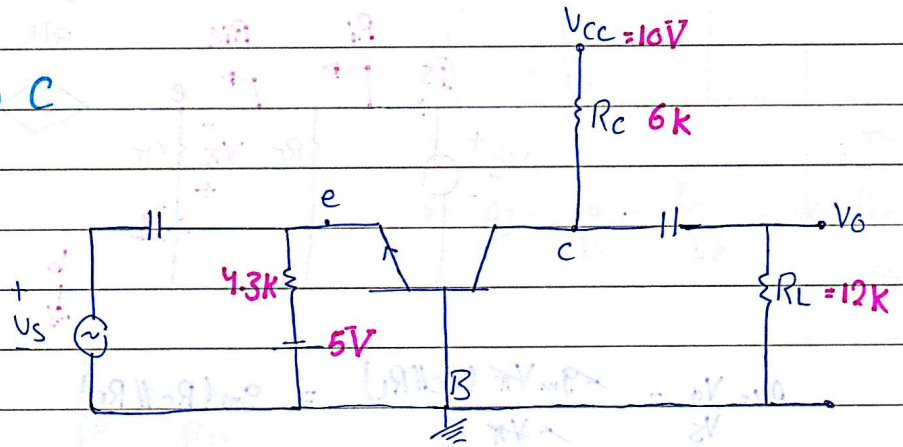 VCC = 10V
C
RC 6k
e
C
VO
4.3k
RL = 12k
+
VS
~
-
5V
B